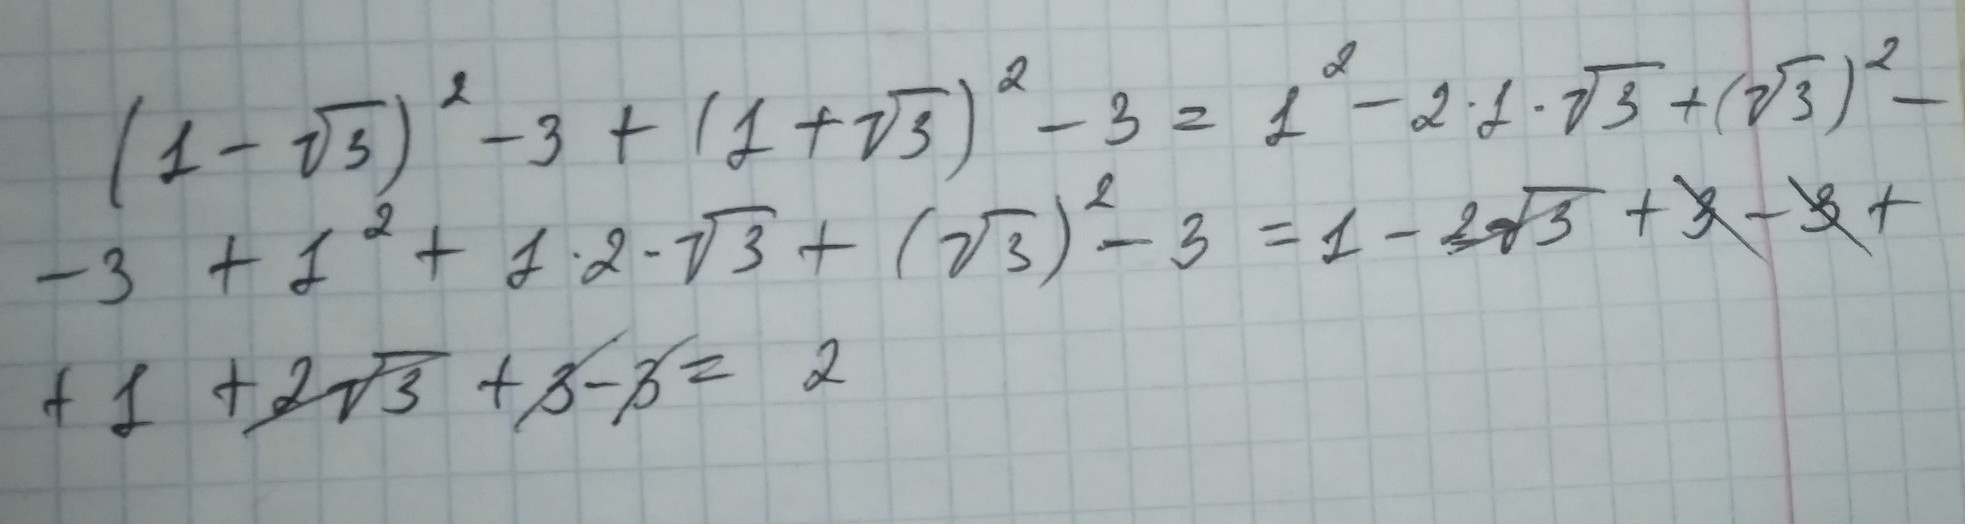 (1-√3)² -3 + (1+√3)² -3 = 1² - 2·1·√3 + (√3)² -
-3 + 1² + 1·2·√3 + (√3)² - 3 = 1 - 2√3 + 3 - 3 +
+ 1 + 2√3 + 3 - 3 = 2